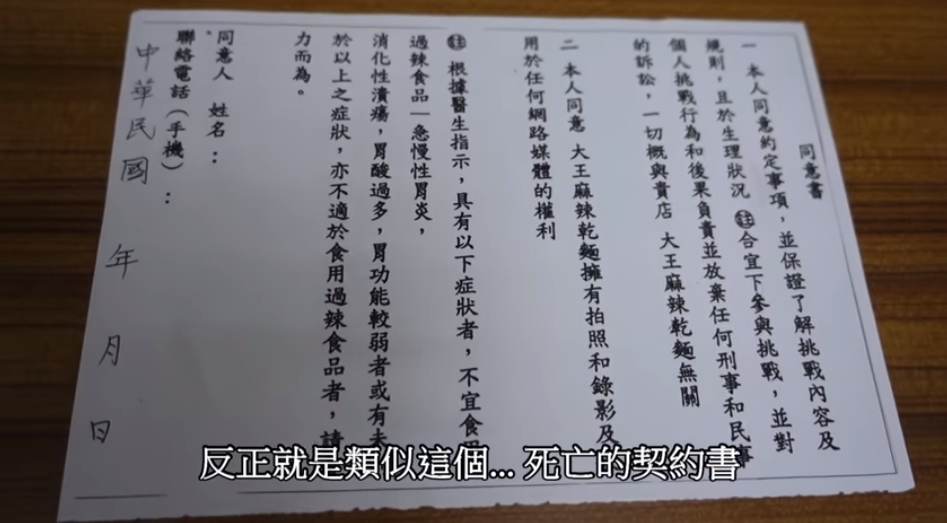 同意書
一 本人同意約定事項，並保證了解挑戰內容及
規則，且於生理狀況 ㊟合宜下參與挑戰，並對
個人挑戰行為和後果負責並放棄任何刑事和民事
的訴訟，一切概與貴店 大王麻辣乾麵無關
二 本人同意 大王麻辣乾麵擁有拍照和錄影及
用於任何網路媒體的權利
㊟ 根據醫生指示，具有以下症狀者，不宜食用
過辣食品—急慢性胃炎，
消化性潰瘍，胃酸過多，胃功能較弱者或有未
於以上之症狀，亦不適於食用過辣食品者，請
力而為。
同意人 姓名：
聯絡電話（手機）：
中華民國 年 月 日
反正就是類似這個... 死亡的契約書